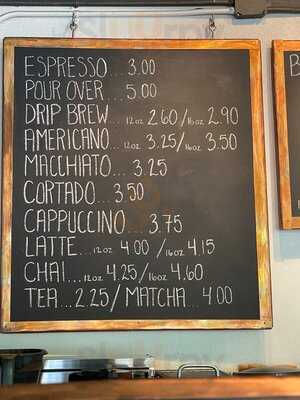 ESPRESSO... 3.00
POUR OVER... 5.00
DRIP BREW... 12oz 2.60/16oz 2.90
AMERICANO... 12oz 3.25/16oz 3.50
MACCHIATO... 3.25
CORTADO... 3.50
CAPPUCCINO... 3.75
LATTE...12oz 4.00 /16oz 4.15
CHAI...12oz 4.25/16oz 4.60
TEA...2.25/ MATCHA... 4.00